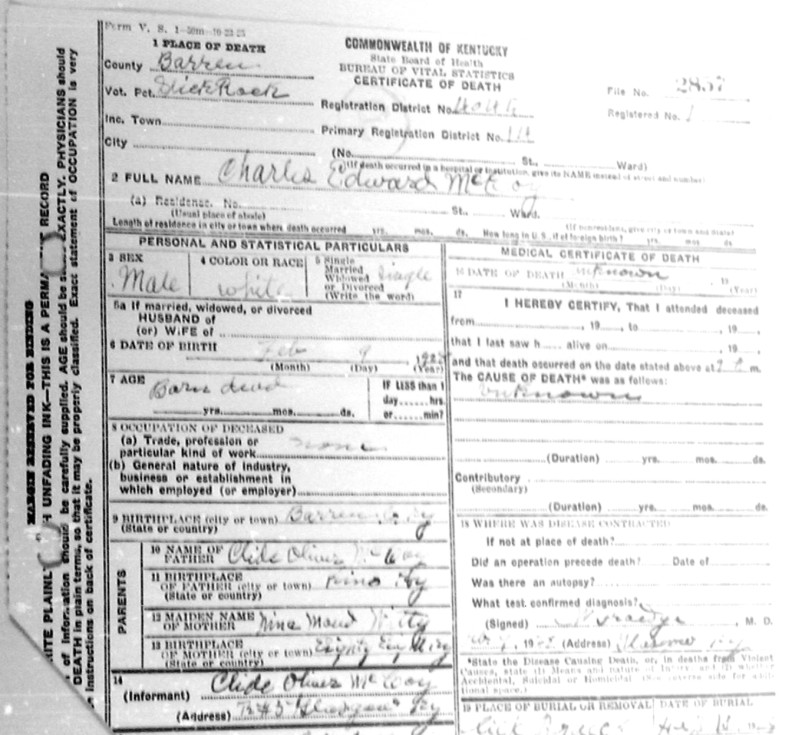 Form V. S. 1-50m-10-23-25
1 PLACE OF DEATH
County Barren
Vot. Pct. Slick Rock
Inc. Town
City
COMMONWEALTH OF KENTUCKY
State Board of Health
BUREAU OF VITAL STATISTICS
CERTIFICATE OF DEATH
File No. 2857
Registered No. 1
Registration District No.
Primary Registration District No.
(No. St., Ward)
(If death occurred in a hospital or institution, give its NAME instead of street and number)
2 FULL NAME Charlie Edward McCoy
(a) Residence. No. St., Ward.
(Usual place of abode) (If nonresident, give city or town and State)
Length of residence in city or town where death occurred yrs. mos. ds. How long in U. S., if of foreign birth? yrs. mos. ds.
PERSONAL AND STATISTICAL PARTICULARS
3 SEX
Male
4 COLOR OR RACE
White
5 Single
Married
Widowed
or Divorced
(Write the word)
Single
5a If married, widowed, or divorced
HUSBAND of
(or) WIFE of
6 DATE OF BIRTH Feb 9
(Month) (Day) (Year)
7 AGE
Born dead
yrs. mos. ds.
IF LESS than 1
day hrs.
or min?
8 OCCUPATION OF DECEASED
(a) Trade, profession or
particular kind of work none
(b) General nature of Industry,
business or establishment in
which employed (or employer)
9 BIRTHPLACE (city or town) Barren Co Ky
(State or country)
PARENTS
10 NAME OF
FATHER Clide Oliver McCoy
11 BIRTHPLACE
OF FATHER (city or town) Ky
(State or country)
12 MAIDEN NAME
OF MOTHER Nina Maud Witty
13 BIRTHPLACE
OF MOTHER (city or town) Eighty Eight Ky
(State or country)
14
(Informant) Clide Oliver McCoy
(Address) Ky
MEDICAL CERTIFICATE OF DEATH
16 DATE OF DEATH unknown
(Month) (Day) (Year)
17
I HEREBY CERTIFY, That I attended deceased
from , 19 , to , 19 ,
that I last saw h alive on , 19 ,
and that death occurred on the date stated above at m.
The CAUSE OF DEATH* was as follows:
Unknown
(Duration) yrs. mos. ds.
Contributory
(Secondary)
(Duration) yrs. mos. ds.
18 WHERE WAS DISEASE CONTRACTED
If not at place of death?
Did an operation precede death? Date of
Was there an autopsy?
What test confirmed diagnosis?
(Signed) , M. D.
(Address) Ky
*State the Disease Causing Death, or, in deaths from Violent
Causes, state (1) Means and Nature of Injury; and (2) whether
Accidental, Suicidal or Homicidal (See reverse side for additional space.)
19 PLACE OF BURIAL OR REMOVAL DATE OF BURIAL
MARGIN RESERVED FOR BINDING
WRITE PLAINLY UNFADING INK—THIS IS A PERMA RECORD
of Information should be carefully supplied. AGE should be EXACTLY. PHYSICIANS should
DEATH in plain terms, so that it may be properly classified. Exact statement of OCCUPATION is very
Instructions on back of certificate.